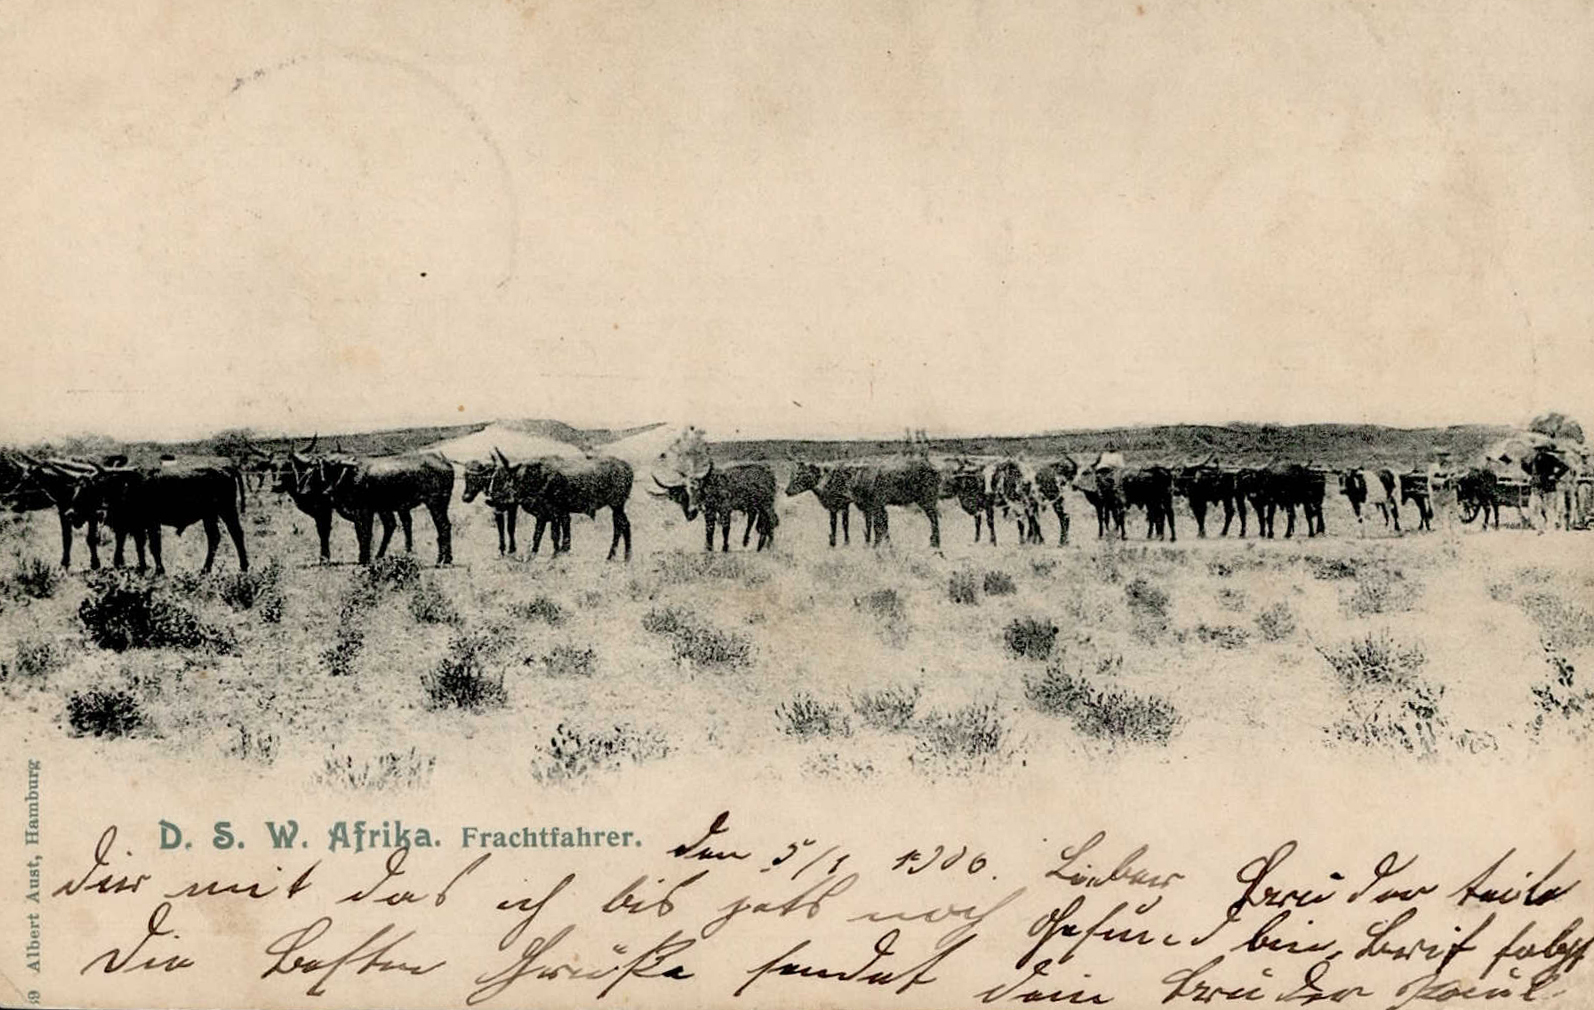 D. S. W. Afrika. Frachtfahrer.
39 Albert Aust, Hamburg
den 5/1 1906. Lieber Bruder teile
dir mit das ich bis jetz noch Gesund bin, Brif folgt
Die Besten Grüße sendet dein Bruder Paul